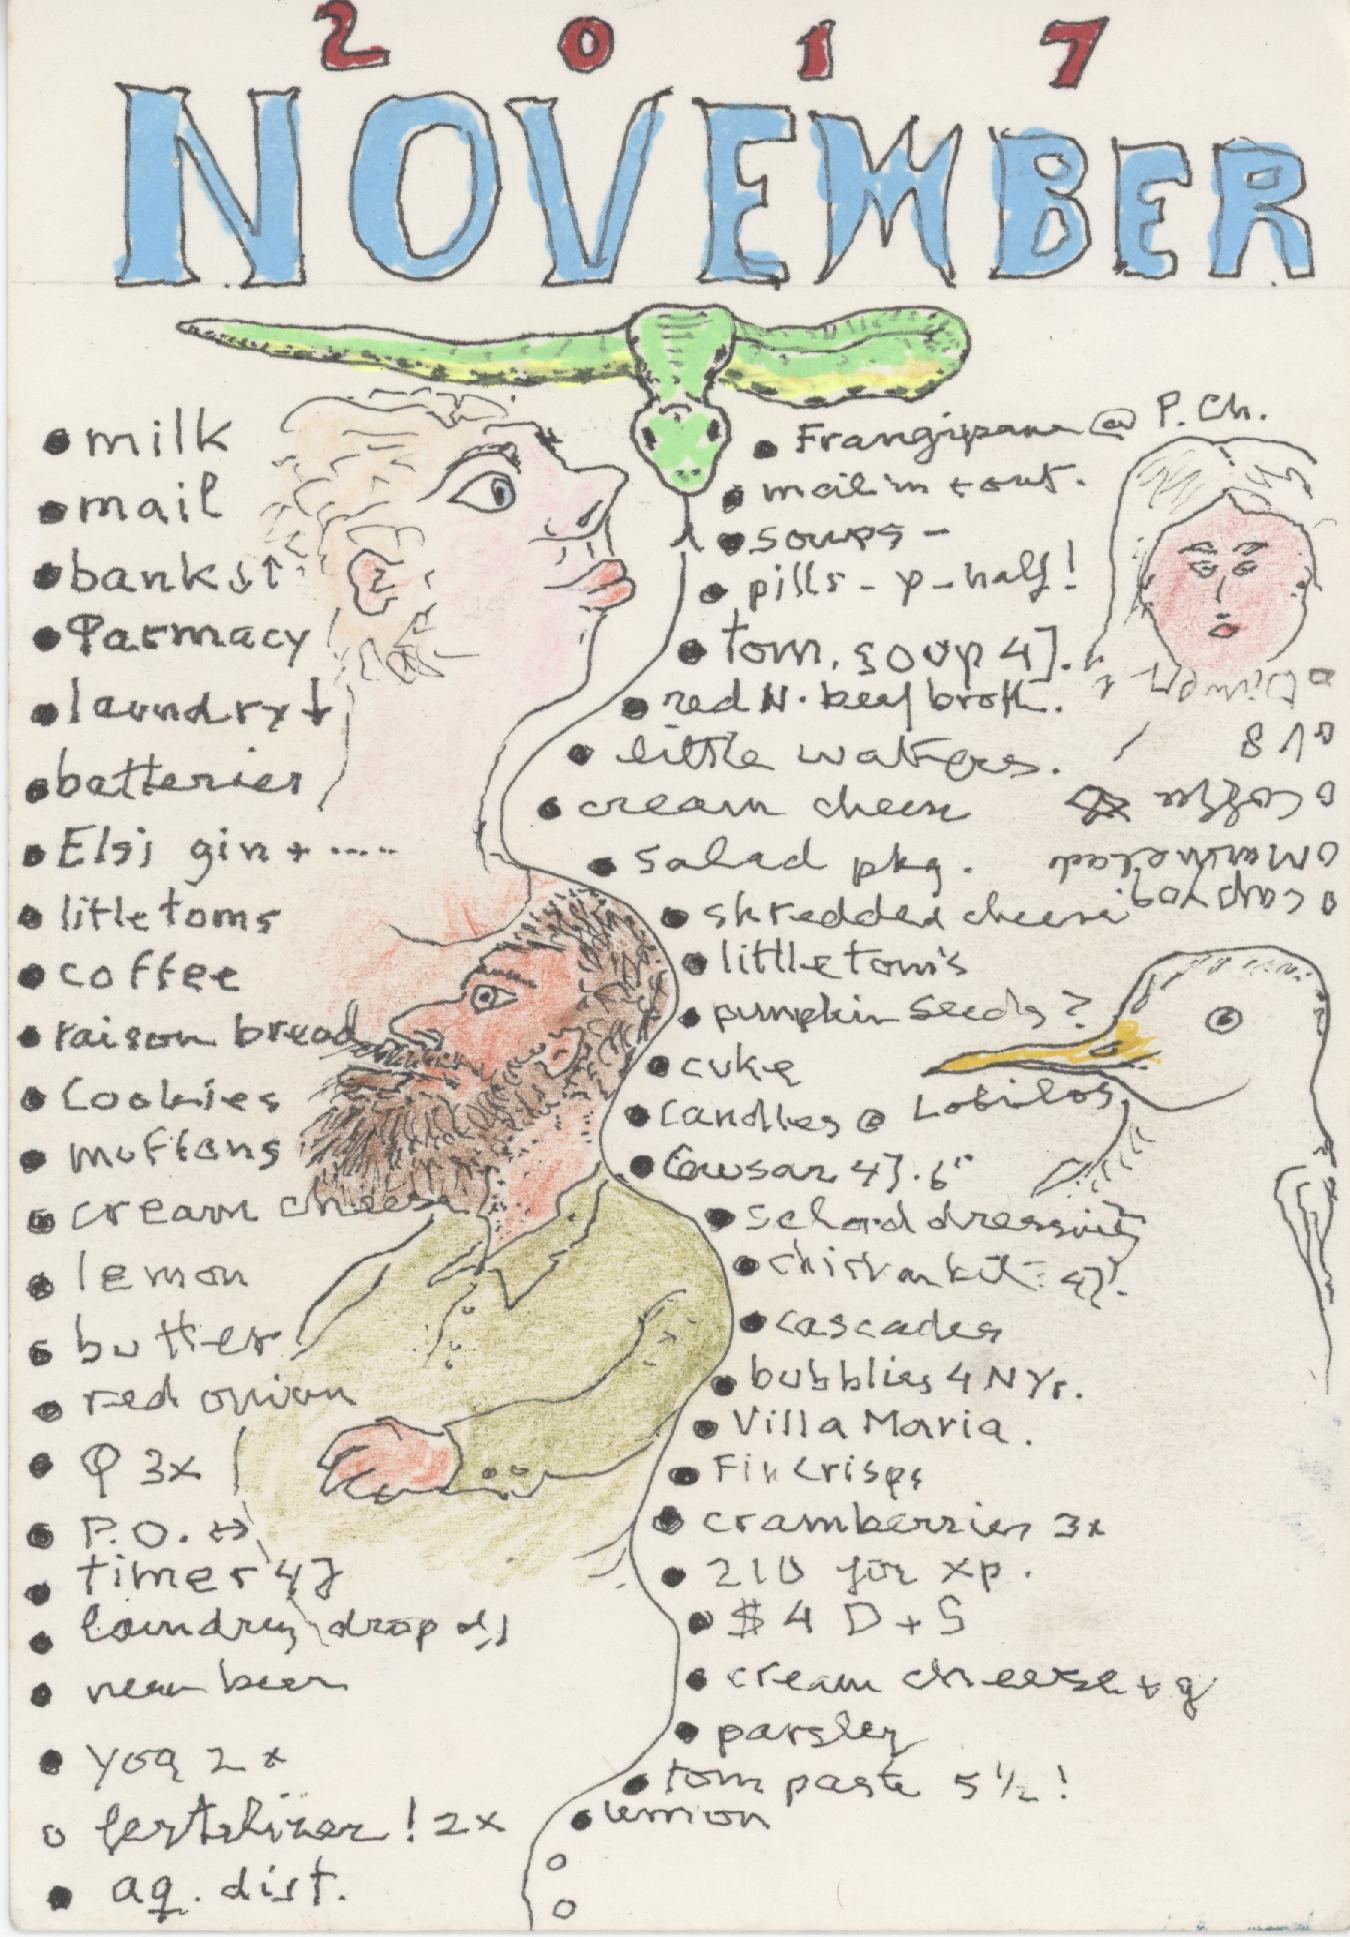 2017
NOVEMBER
milk
mail
bank ↓↑
Parmacy
laundry ↓
batteries
Elsj gin + .....
litle toms
coffee
raison bread
Cookies
muffans
cream cheese
lemon
butter
red onion
Q 3x
P.O. ↔
timer 4}
laundry drop
near beer
yog 2x
fertilizer! 2x
aq. dist.
Frangipana @ P. Ch.
mail in + out.
soups -
pills - y - half!
tom. soup 4].
red N. beef broth.
little waters.
cream cheese
salad pkg.
shredded cheese
little tom's
pumpkin seeds?
cuke
candles @ Lobilos
4}. 6"
salad dressing
4}.
cascades
bubblies 4 NYr.
Villa Maria.
Fin Crisps
cramberries 3x
210 for xp.
$ 4 D + S
cream cheese + g
parsley
tom paste 5 1/2!
lemon
V8
coffee
Marmelade